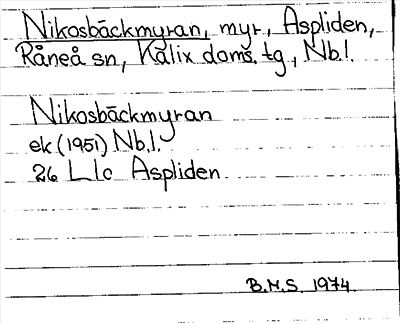 Nikosbäckmyran, myr, Aspliden,
Råneå sn, Kalix doms. tg., Nb.l.
Nikosbäckmyran
ek (1951) Nb.l.
26 Llc Aspliden
B.M.S. 1974